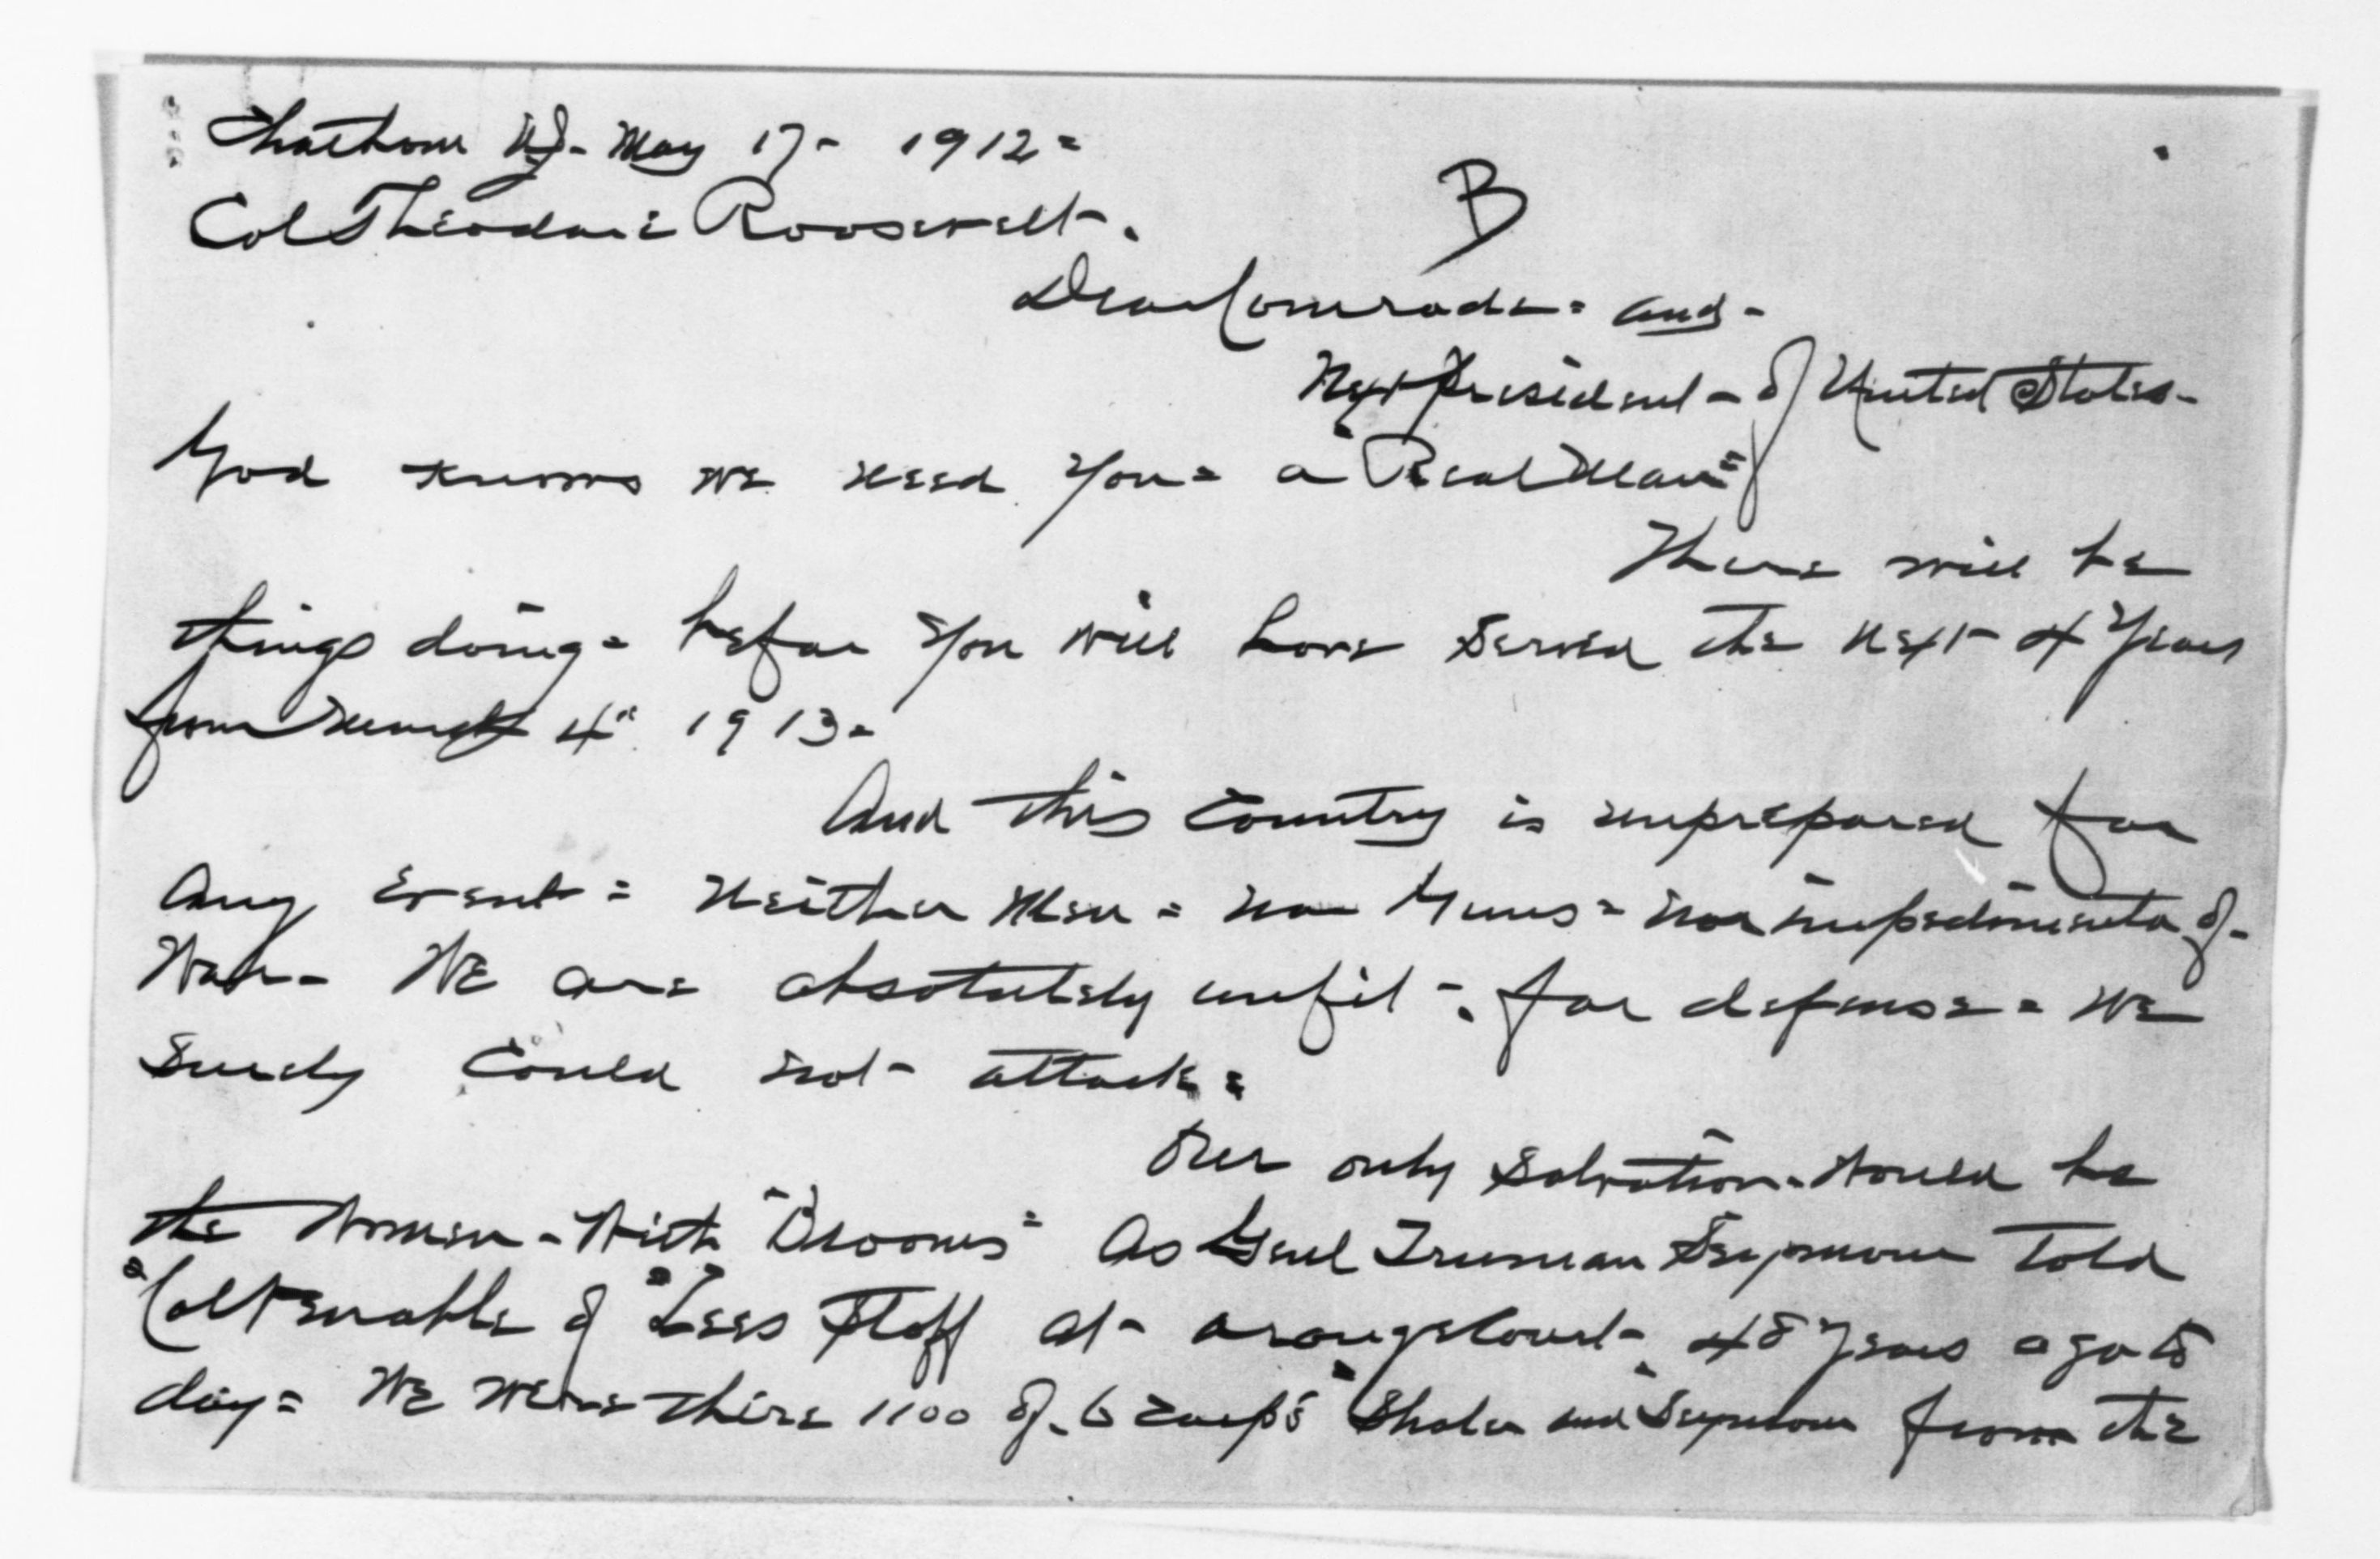 Chatham NJ- May 17- 1912=
Col Theodore Roosevelt-.
B
Dear Comrade= and-
Next President- of United States-
God knows we need you= a "Real Man"
There will be
things doing= before you will have served the next 4 years
from March 4" 1913=
And this Country is unprepared for
any event= neither Men= nor Guns= nor impedimenta of-
War- We are absolutely unfit-. for defense= we
surely could not- attack=
Our only salvation- would be
the Women- With "Brooms" as Genl Truman Seymour told
"Col Venable of "Lees" Staff at- 48 years ago to
day= We were there 1100 of- 6 Corps "Shaler and Seymour" from the